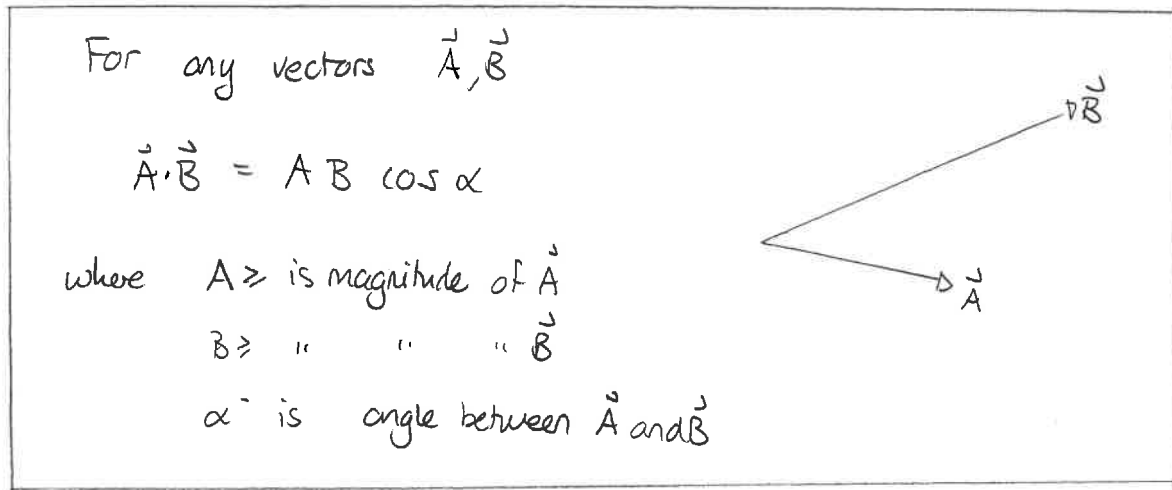 For any vectors A⃗, B⃗
A⃗·B⃗ = A B cos α
where A ≥ is magnitude of A⃗
B ≥ " " " B⃗
α - is angle between A⃗ and B⃗
B⃗
A⃗